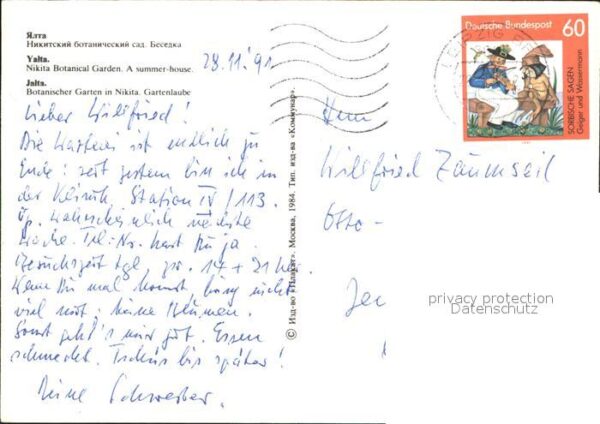 Ялта
Никитский ботанический сад. Беседка
Yalta.
Nikita Botanical Garden. A summer-house.
Jalta.
Botanischer Garten in Nikita. Gartenlaube
28.11.91
Lieber Willfried!
Die Warterei ist endlich zu
Ende: seit gestern bin ich in
der Klinik, Station IV/113.
Op. wahrscheinlich nächste
Woche. Tel.-Nr. hast Du ja.
Besuchszeit tgl. zw. 14 + 21 Uhr.
Wenn Du mal kommst bring nicht
viel mit: keine Blumen.
Sonst geht's mir gut. Essen
schmeckt. Tschüs bis später!
Deine Schwester.
© Изд-во «Планета», Москва, 1984. Тип. изд-ва «Коммунар».
Deutsche Bundespost 60
SORBISCHE SAGEN
Geiger und Wassermann
LEIPZIG
Herrn
Willfried Zaumseil
Otto-
Jen
privacy protection
Datenschutz